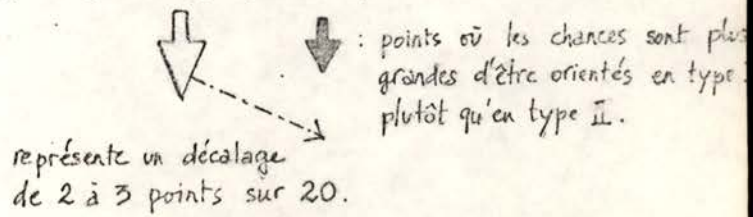 : points où les chances sont plus
grandes d'être orientés en type
plutôt qu'en type II.
représente un décalage
de 2 à 3 points sur 20.